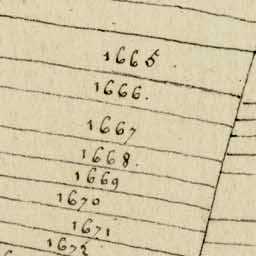 1665
1666.
1667
1668.
1669
1670
1671
1672